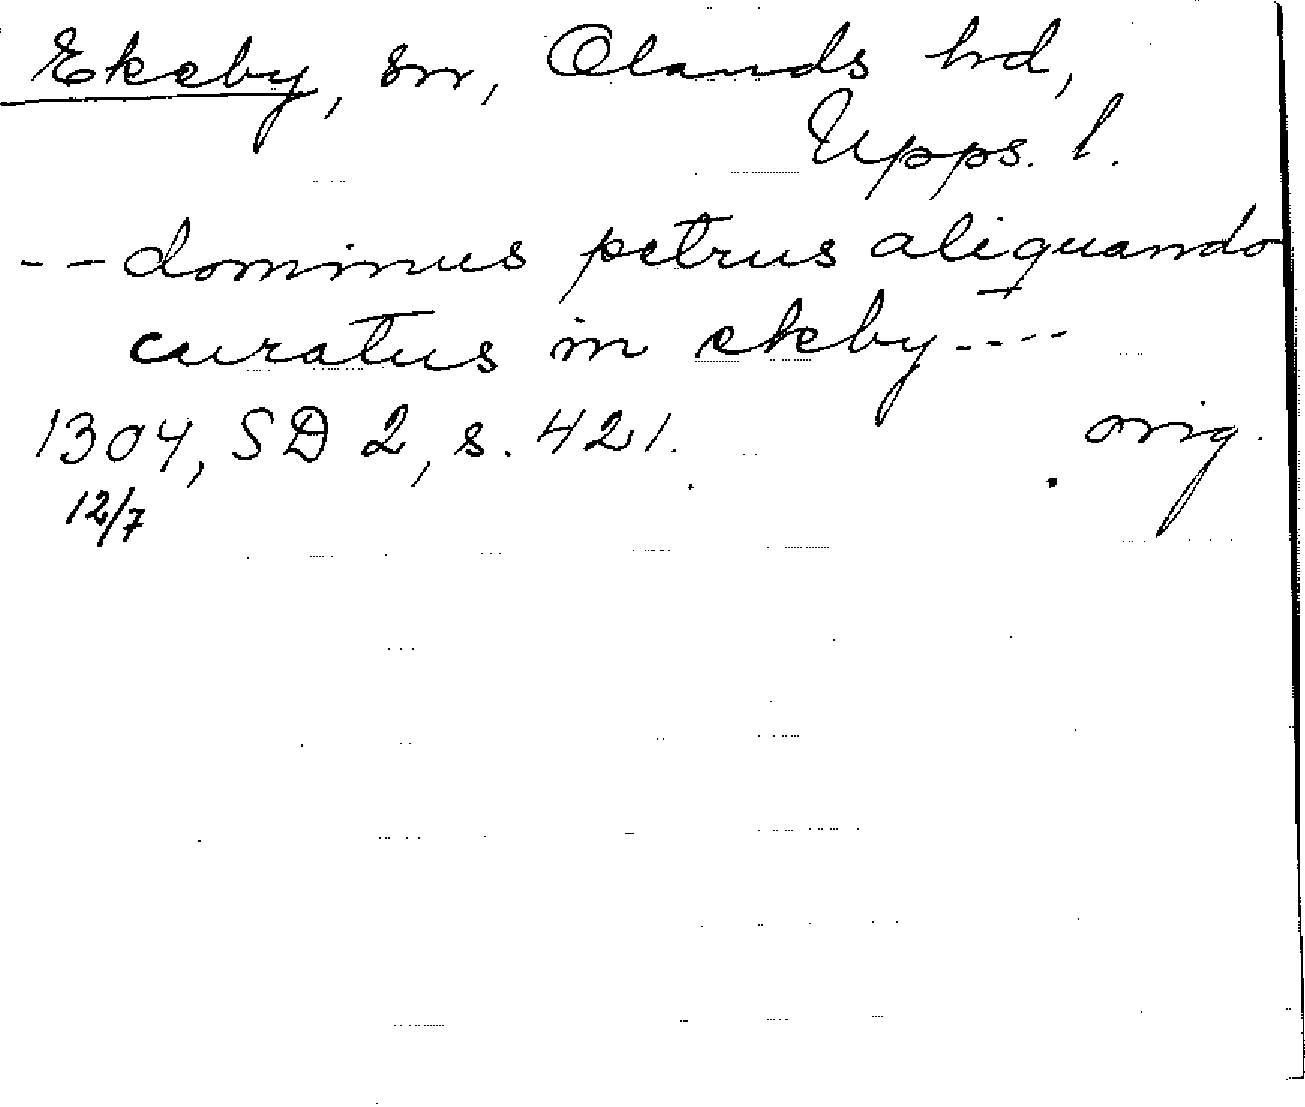 Ekeby, sn, Olands hd,
Upps. l.
-- dominus petrus aliquando
curatus in ekeby ----
1304, SD 2, s. 421. orig.
12/7